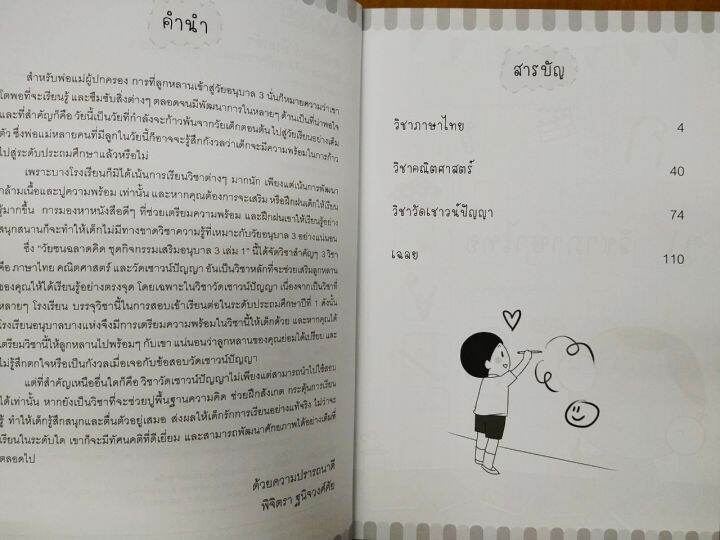 คำนำ
สำหรับพ่อแม่ผู้ปกครอง การที่ลูกหลานเข้าสู่วัยอนุบาล 3 นั้นก็หมายความว่าเขา
โตพอที่จะเรียนรู้ และซึมซับสิ่งต่างๆ ตลอดจนมีพัฒนาการในหลายๆ ด้านเป็นที่น่าพอใจ
และที่สำคัญก็คือ วัยนี้เป็นวัยที่กำลังจะก้าวพ้นจากวัยเด็กตอนต้น ไปสู่วัยเรียนอย่างเต็ม
ตัว ซึ่งพ่อแม่หลายคนที่มีลูกในวัยนี้ก็อาจจะรู้สึกกังวลว่าเด็กจะมีความพร้อมในการก้าว
ไปสู่ระดับประถมศึกษาแล้วหรือไม่
เพราะบางโรงเรียนก็มิได้เน้นการเรียนวิชาต่างๆ มากนัก เพียงแต่เน้นการพัฒนา
กล้ามเนื้อและปูความพร้อม เท่านั้น และหากคุณต้องการจะเสริม หรือฝึกฝนเด็กให้เรียน
รู้มากขึ้น การมองหาหนังสือดีๆ ที่ช่วยเตรียมความพร้อม และฝึกฝนเขาให้เรียนรู้อย่าง
สนุกสนานก็จะทำให้เด็กไม่มีทางขาดวิชาความรู้ที่เหมาะกับวัยอนุบาล 3 อย่างแน่นอน
ซึ่ง "วัยซนฉลาดคิด ชุดกิจกรรมเสริมอนุบาล 3 เล่ม 1" นี้ได้จัดวิชาสำคัญๆ 3 วิชา
คือ ภาษาไทย คณิตศาสตร์ และวัดเชาวน์ปัญญา อันเป็นวิชาหลักที่จะช่วยเสริมลูกหลาน
ของคุณให้ได้เรียนรู้อย่างตรงจุด โดยเฉพาะในวิชาวัดเชาวน์ปัญญา เนื่องจากเป็นวิชาที่
หลายๆ โรงเรียน บรรจุวิชานี้ในการสอบเข้าเรียนต่อในระดับประถมศึกษาปีที่ 1 ดังนั้น
โรงเรียนอนุบาลบางแห่งจึงมีการเตรียมความพร้อมในวิชานี้ให้เด็กด้วย และหากคุณได้
เตรียมวิชานี้ให้ลูกหลานไปพร้อมๆ กับเขา แน่นอนว่าลูกหลานของคุณย่อมได้เปรียบ และ
ไม่รู้สึกตกใจหรือเป็นกังวลเมื่อเจอกับข้อสอบวัดเชาวน์ปัญญา
แต่ที่สำคัญเหนืออื่นใดก็คือ วิชาวัดเชาวน์ปัญญาไม่เพียงแต่สามารถนำไปใช้สอบ
ได้เท่านั้น หากยังเป็นวิชาที่จะช่วยปูพื้นฐานความคิด ช่วยฝึกสังเกต กระตุ้นการเรียน
รู้ ทำให้เด็กรู้สึกสนุกและตื่นตัวอยู่เสมอ ส่งผลให้เด็กรักการเรียนอย่างแท้จริง ไม่ว่าจะ
เรียนในระดับใด เขาก็จะมีทัศนคติที่ดีเยี่ยม และสามารถพัฒนาศักยภาพได้อย่างเต็มที่
ตลอดไป
ด้วยความปรารถนาดี
พิจิตรา ฐนิจวงศ์ศัย
สารบัญ
วิชาภาษาไทย 4
วิชาคณิตศาสตร์ 40
วิชาวัดเชาวน์ปัญญา 74
เฉลย 110